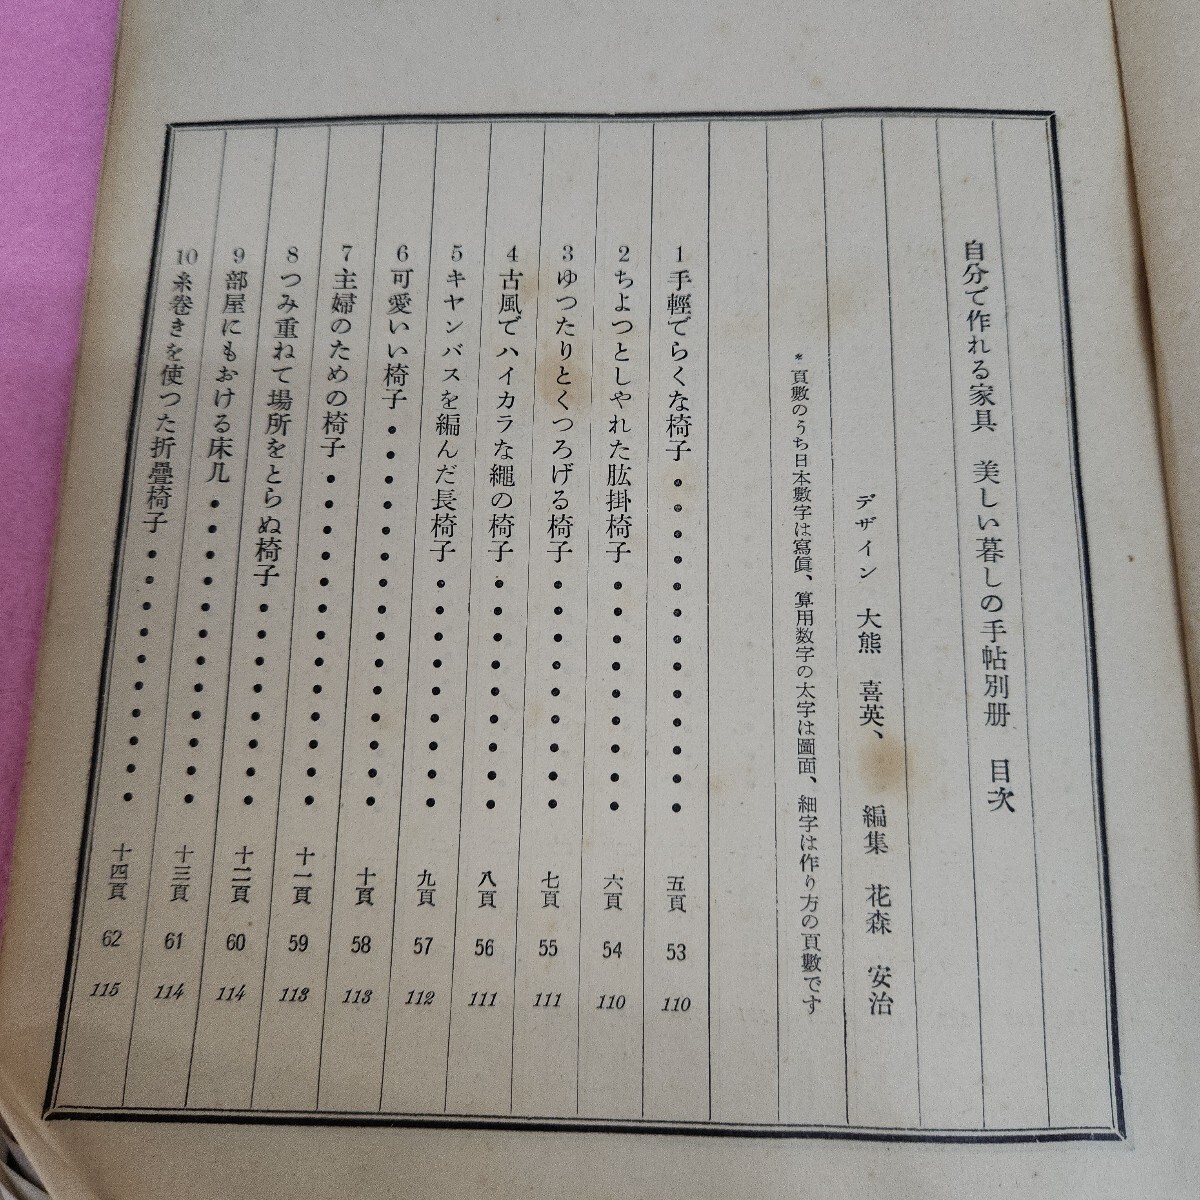 自分で作れる家具　美しい暮しの手帖別册　目次
デザイン　大熊　喜英、　編集　花森　安治
*頁數のうち日本數字は寫眞、算用数字の太字は圖面、細字は作り方の頁數です
1 手輕でらくな椅子・・・・・・・・・・・・・五頁 53 110
2 ちよつとしやれた肱掛椅子・・・・・・・・・六頁 54 110
3 ゆつたりとくつろげる椅子・・・・・・・・・七頁 55 111
4 古風でハイカラな繩の椅子・・・・・・・・・八頁 56 111
5 キヤンバスを編んだ長椅子・・・・・・・・・九頁 57 112
6 可愛いい椅子・・・・・・・・・・・・・・・十頁 58 113
7 主婦のための椅子・・・・・・・・・・・・・十一頁 59 113
8 つみ重ねて場所をとらぬ椅子・・・・・・・・十二頁 60 114
9 部屋にもおける床几・・・・・・・・・・・・十三頁 61 114
10 糸巻きを使つた折疊椅子・・・・・・・・・・十四頁 62 115